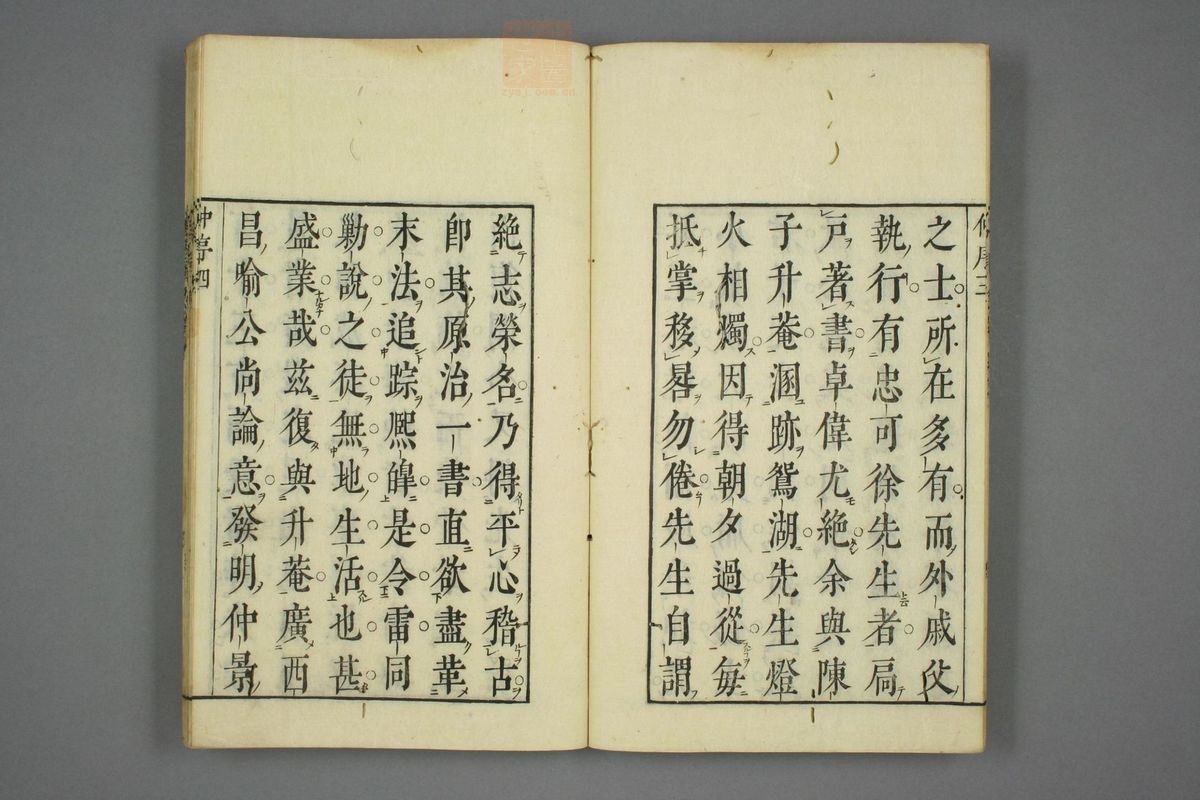 之士所在多有而外戚父
執行有忠可徐先生者扃
戸著書卓偉尤絶余與陳
子升菴溷跡鴛湖先生燈
火相燭因得朝夕過從每
抵掌移晷勿倦先生自謂
絶志榮名乃得平心稽古
卽其原治一書直欲盡革
末法追踪熈皥是令雷同
勦説之徒無地生活也甚
盛業哉兹復與升菴廣西
昌喻公尚論意發明仲景
仲序四